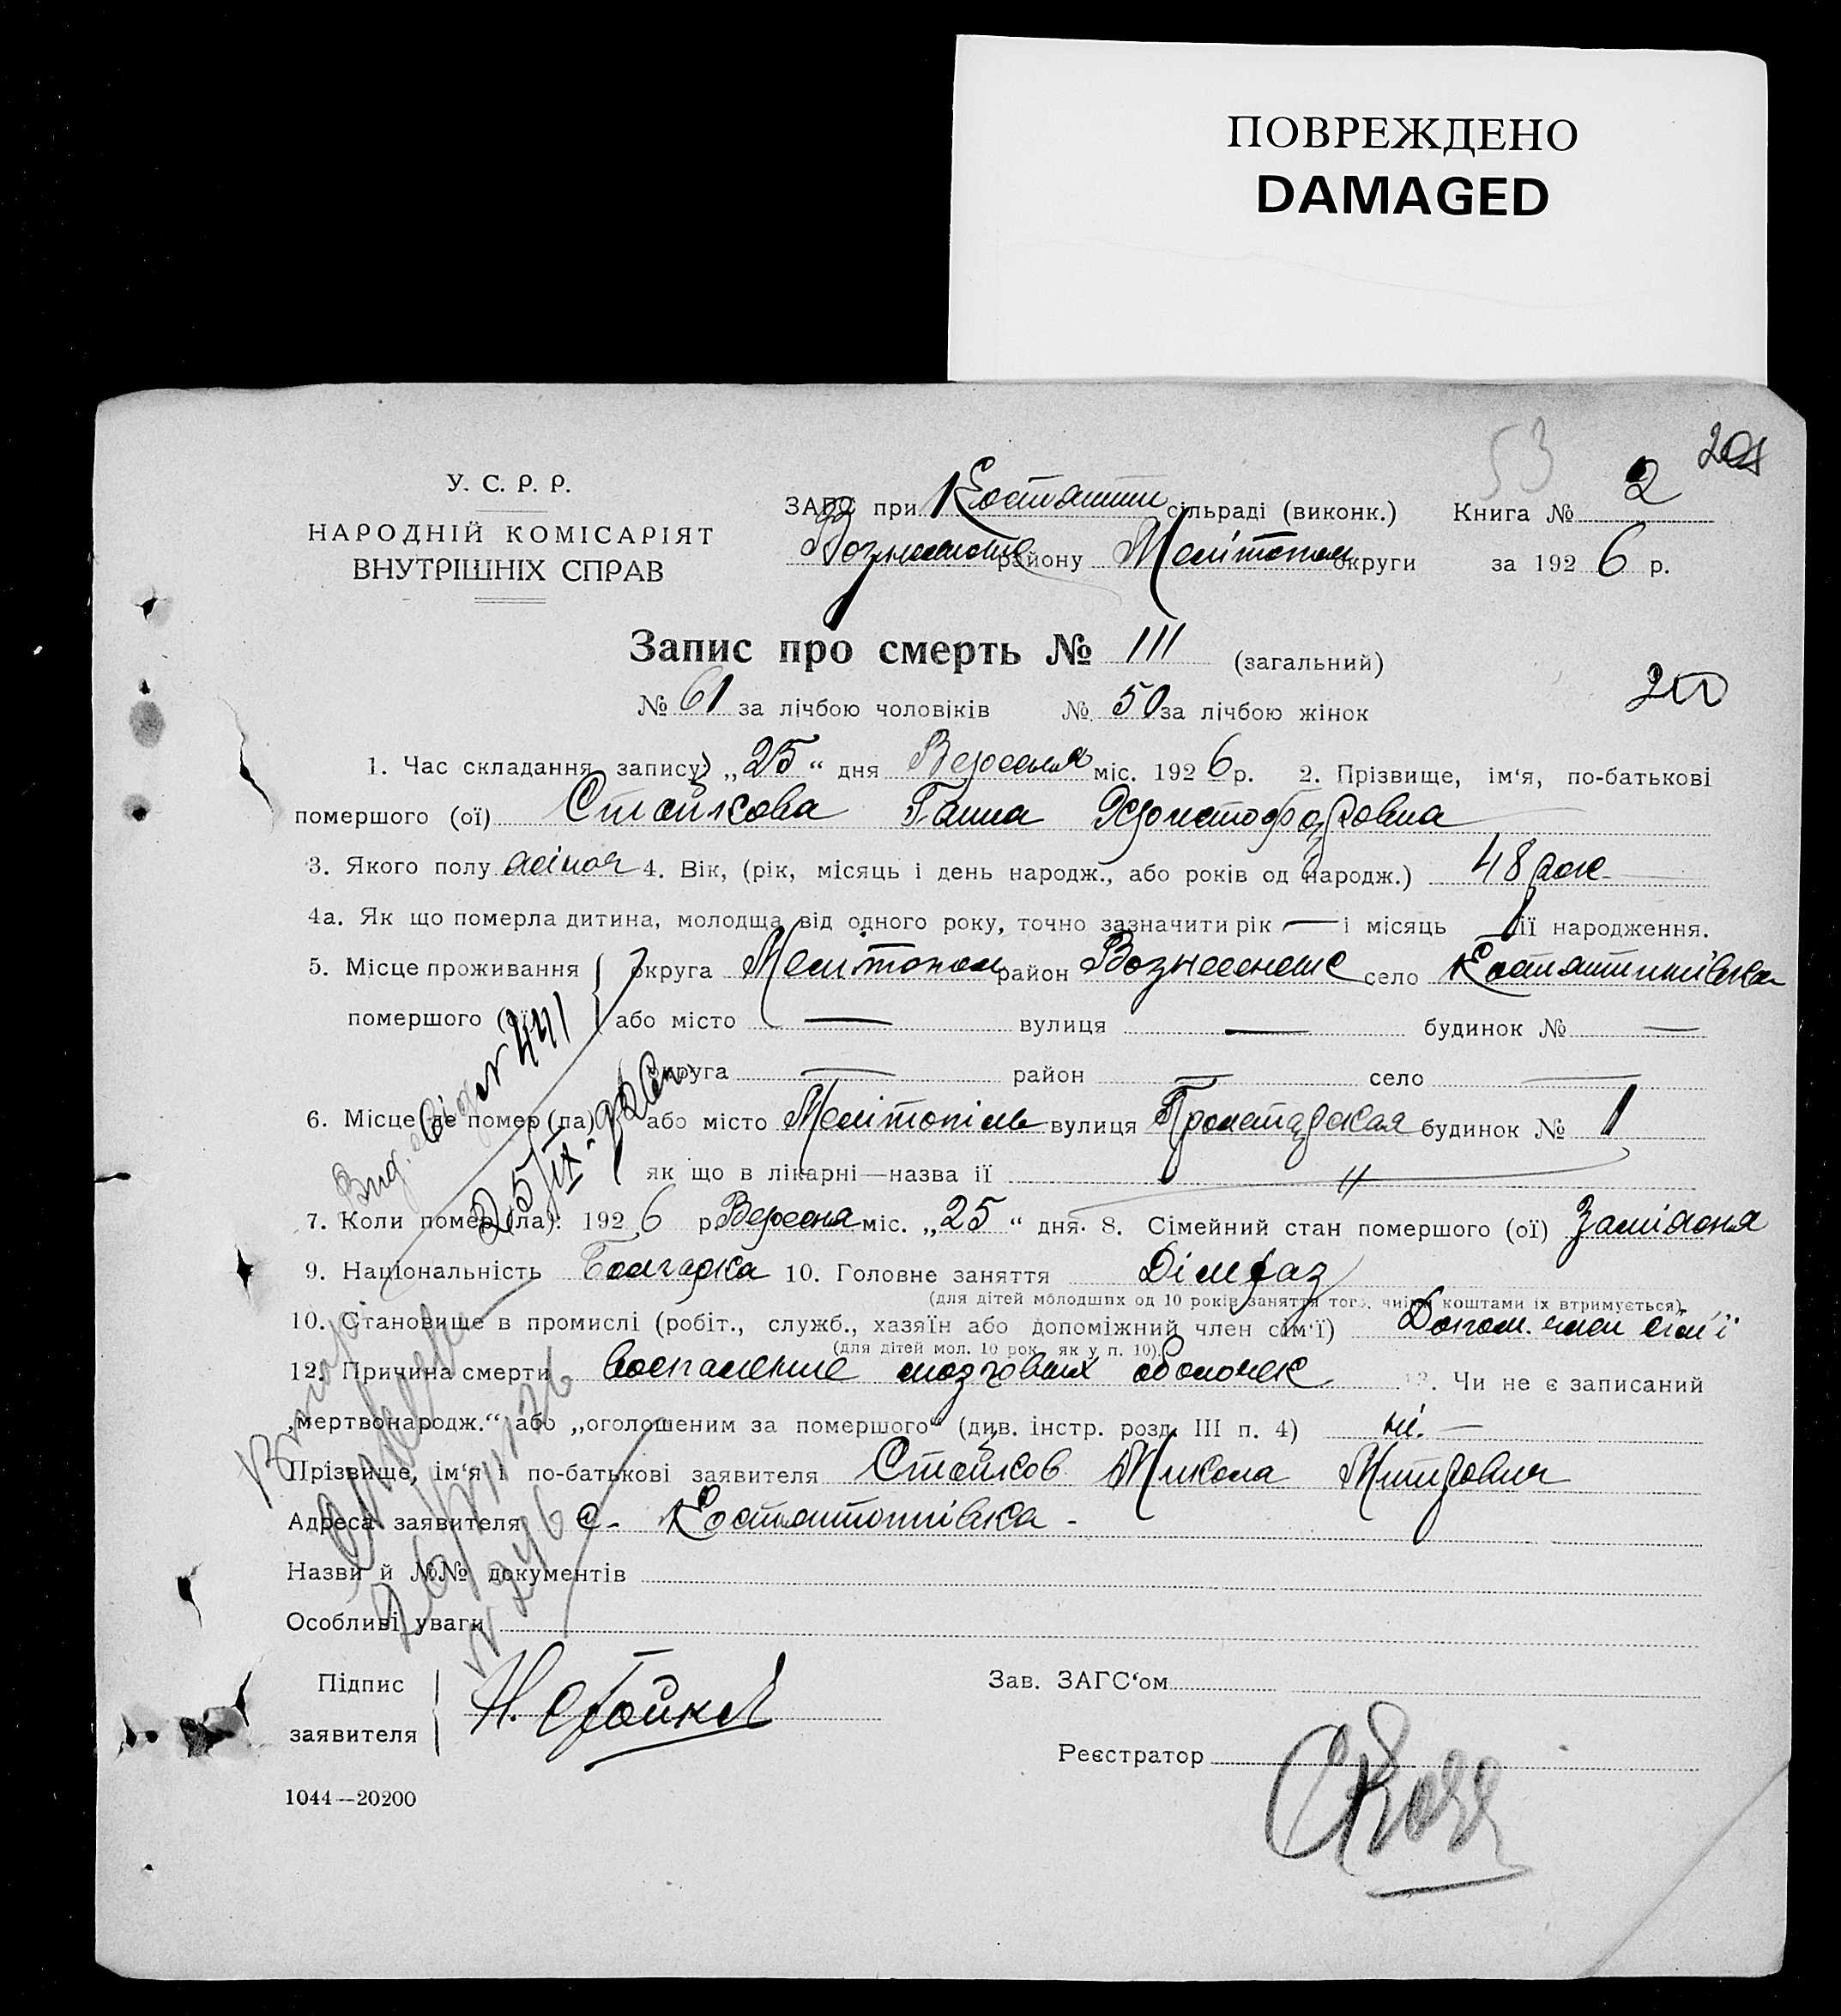 ПОВРЕЖДЕНО
DAMAGED
53 2 201
У. С. Р. Р.
НАРОДНІЙ КОМІСАРІЯТ
ВНУТРІШНІХ СПРАВ
ЗАГС при Костянтин сільраді (виконк.) Книга №
району Мелітопол округи за 1926 р.
Запис про смерть № 111 (загальний)
200
№ 61 за лічбою чоловіків № 50 за лічбою жінок
1. Час складання запису: „25“ дня Вересня міс. 1926 р. 2. Прізвище, ім‘я, по-батькові
помершого (ої) Стойкова Ганна Христофоровна
3. Якого полу жіноч 4. Вік, (рік, місяць і день народж., або років од народж.) 48 рок
4а. Як що померла дитина, молодща від одного року, точно зазначити рік — і місяць її народження.
5. Місце проживання округа Мелітопол район Вознесенське село Костянтинівка
помершого (ої) або місто — вулиця — будинок № —
округа — район — село —
6. Місце де помер (ла) або місто Мелітопіль вулиця Пролетарская будинок № 1
як що в лікарні—назва її //
7. Коли помер (ла): 1926 р. Вересня міс. „25“ дня. 8. Сімейний стан помершого (ої) Заміжня
9. Національність Болгарка 10. Головне заняття
(для дітей молодших од 10 років заняття того, чиїми коштами їх втримується)
10. Становище в промислі (робіт., служб., хазяїн або допоміжний член сім‘ї) Допом. член сім'ї
(для дітей мол. 10 рок. як у п. 10).
12. Причина смерти воспаление мозговых оболочек 12. Чи не є записаний
„мертвонародж.“ або „оголошеним за помершого“ (див. інстр. розд. III п. 4) ні. —
Прізвище, ім‘я і по-батькові заявителя Стойков Микола Митрович
Адреса заявителя с. Костянтинівка -
Назви й №№ документів
Особливі уваги
Підпис
заявителя
Н. Стойков
Зав. ЗАГС‘ом
Реєстратор
1044—20200
25/IX-